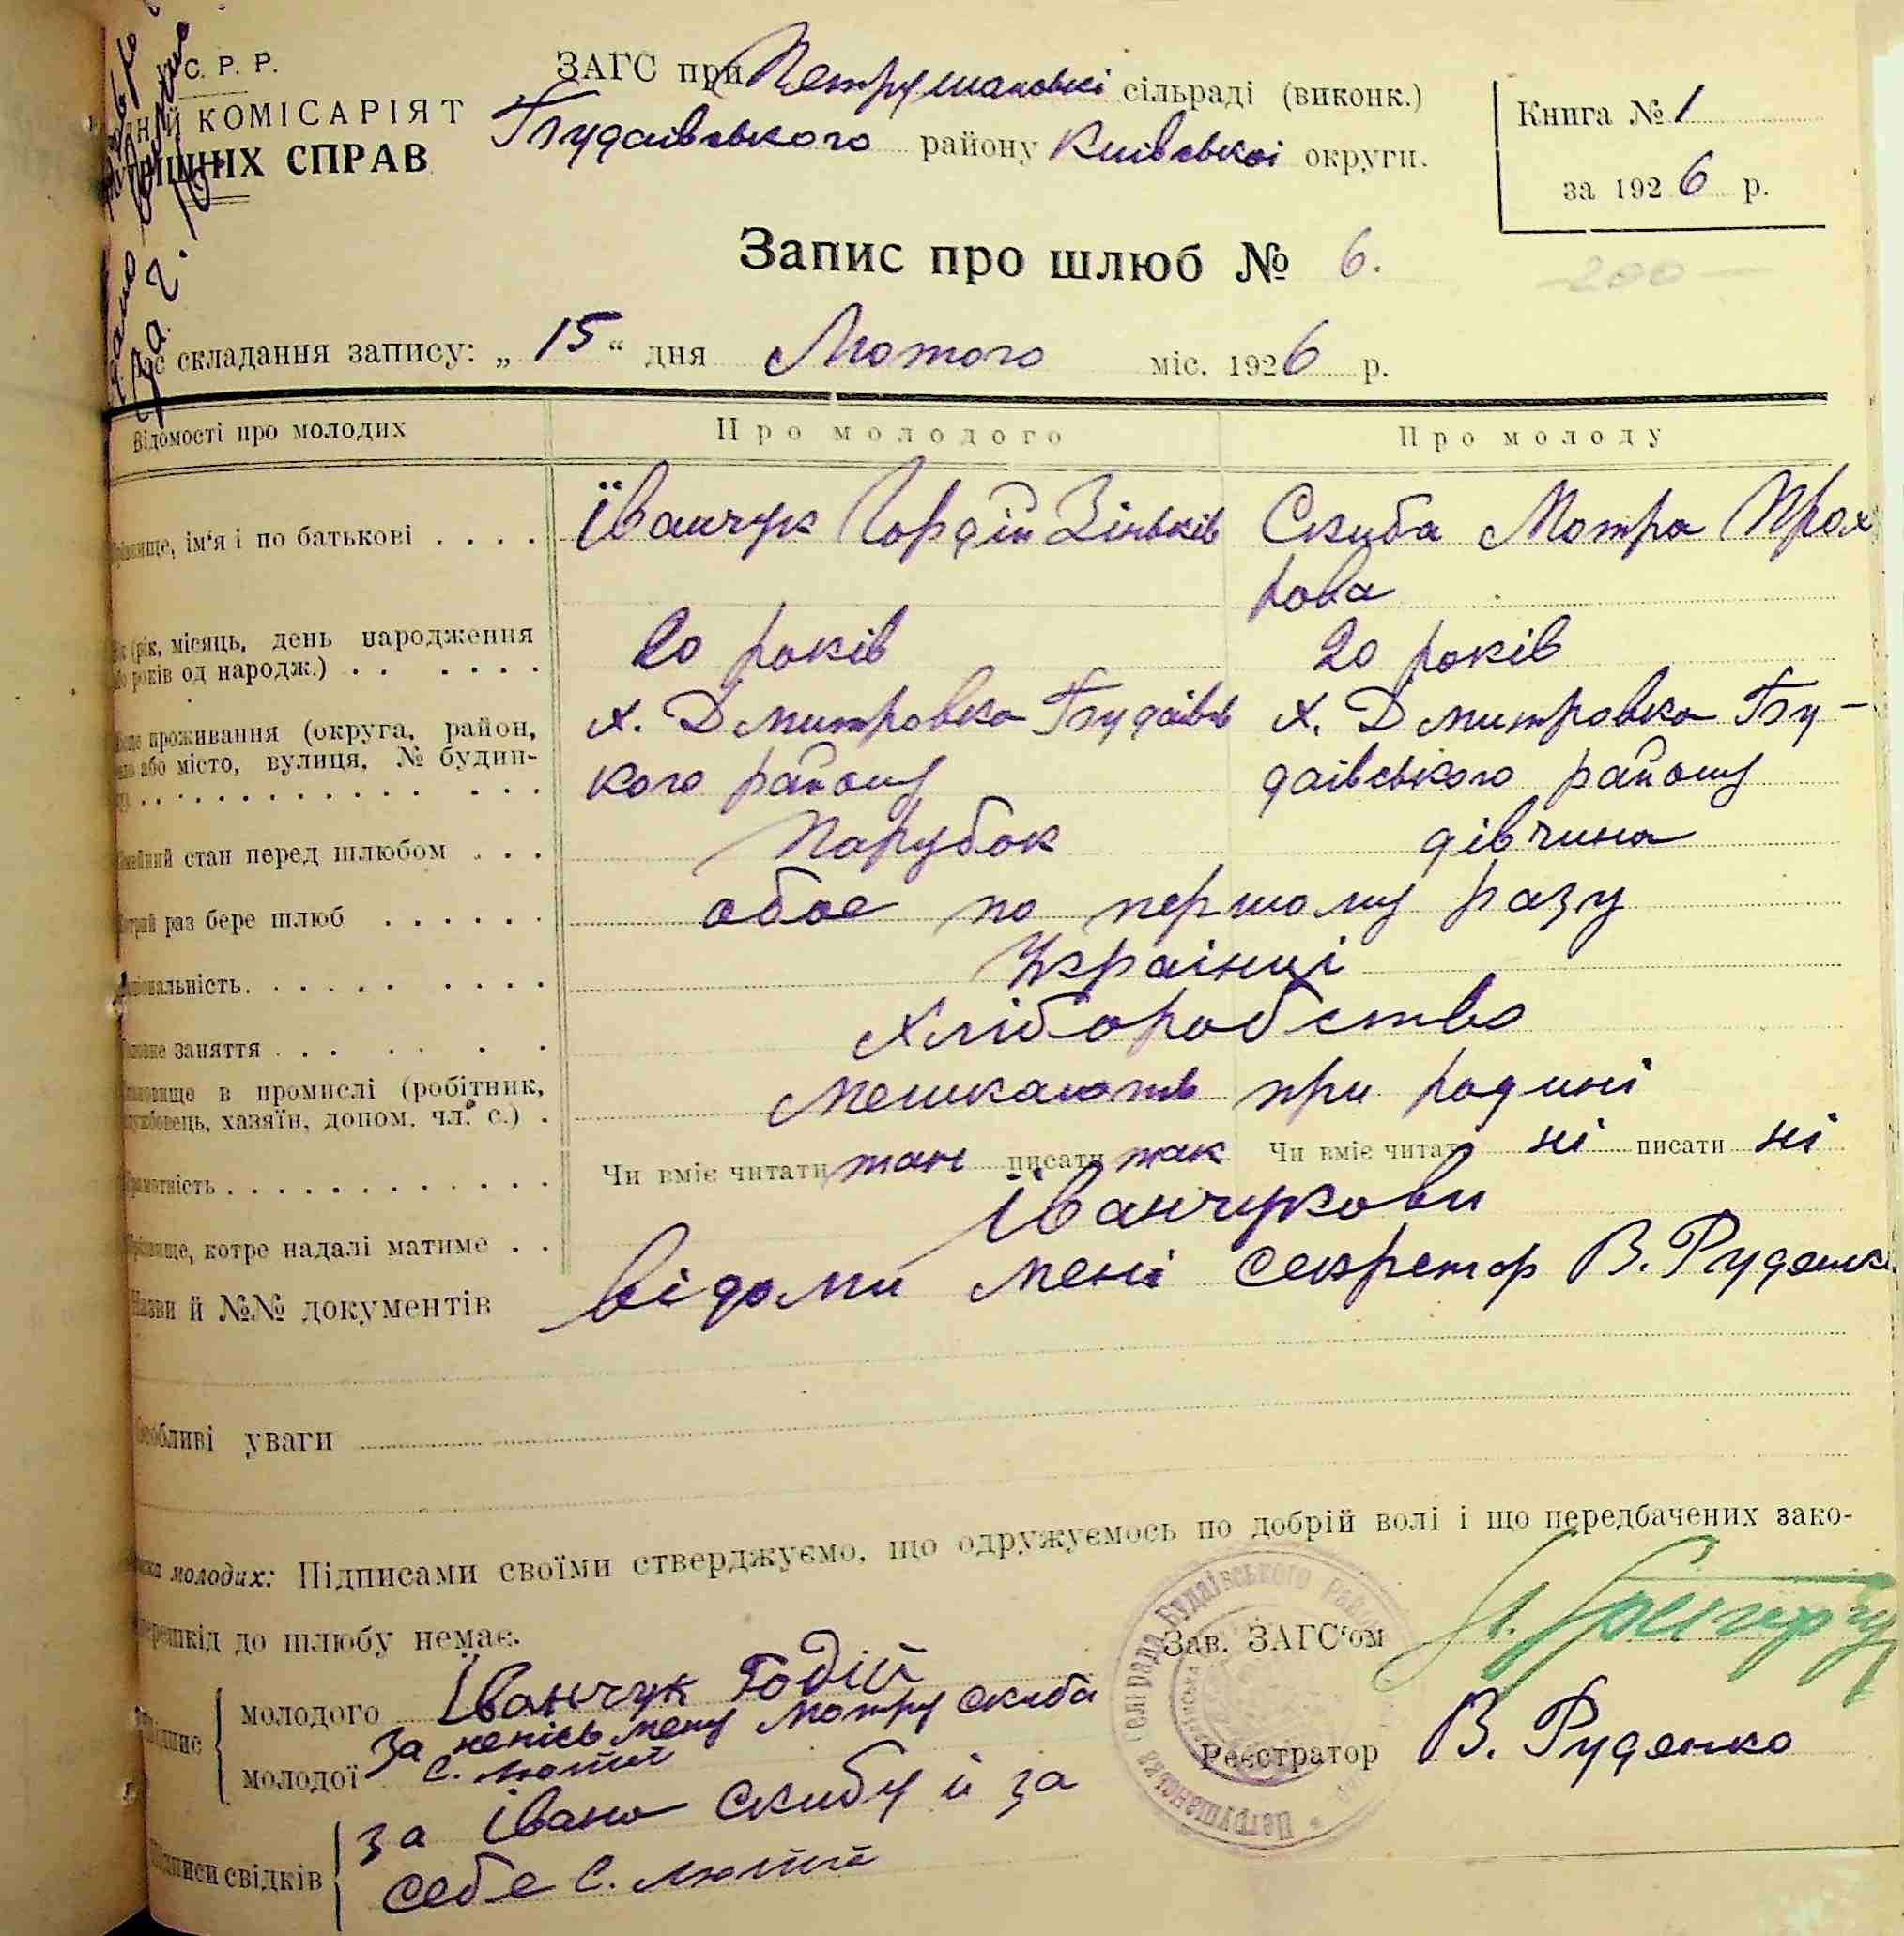 С. Р. Р.
КОМІСАРІЯТ
СПРАВ
ЗАГС при Петрушановскі сільраді (виконк.)
Будаівського району Киівськоі округи.
Книга № 1
за 1926 р.
Запис про шлюб № 6.
200
складання запису: „ 15 “ дня Лютого міс. 1926 р.
Відомості про молодих
Про молодого
Про молоду
ім'я і по батькові . . . .
Їванчук Гордій Зіньків
Скиба Мотра Прох
рова
(рік, місяць, день народження
років од народж.) . . . . . .
20 років
20 років
проживання (округа, район,
або місто, вулиця, № будин-
х. Дмитровка Будаівсь
кого району
х. Дмитровка Бу-
даівського району
стан перед шлюбом . . .
Парубок
дівчина
раз бере шлюб . . . . . .
обое по першому разу
Украінці
заняття . . . . . .
Хліборобство
в промислі (робітник,
хазяїн, допом. чл. с.) .
мешкають при родині
Чи вміє читати так писати так Чи вміє читати ні писати ні
котре надалі матиме . .
Їванчукови
й №№ документів
відоми мені секретар В. Руденко
уваги
молодих: Підписами своїми стверджуємо, що одружуємось по добрій волі і що передбачених зако-
до шлюбу немає.
Зав. ЗАГС'ом
молодого Їванчук Годій
за непісьмену Мотру Скиба
молодої С. Лютий
Реєстратор В. Руденко
за Івана Скибу й за
свідків
себе С. Лютий